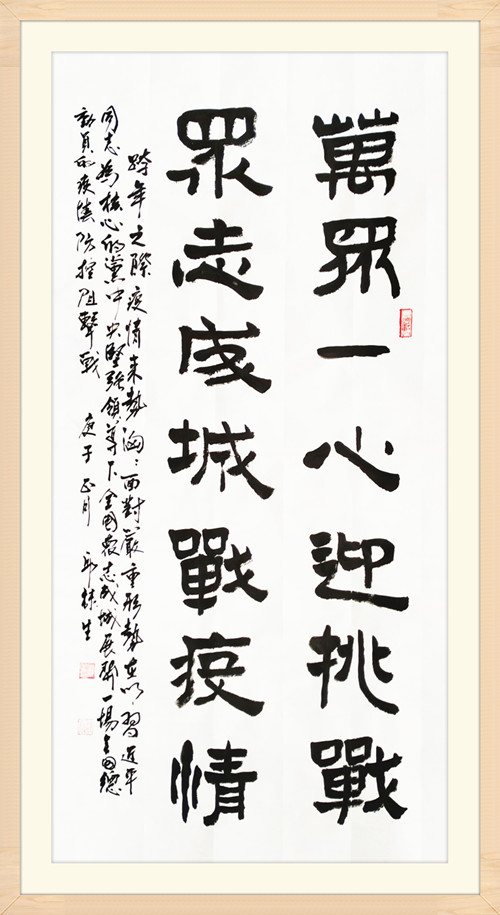 萬眾一心迎挑戰
眾志成城戰疫情
跨年之際疫情來勢洶洶面對嚴重形勢在以習近平
同志為核心的黨中央堅強領導下全國衆志成城展開一場全國總
動員的疫情防控阻擊戰 庚子正月 林生